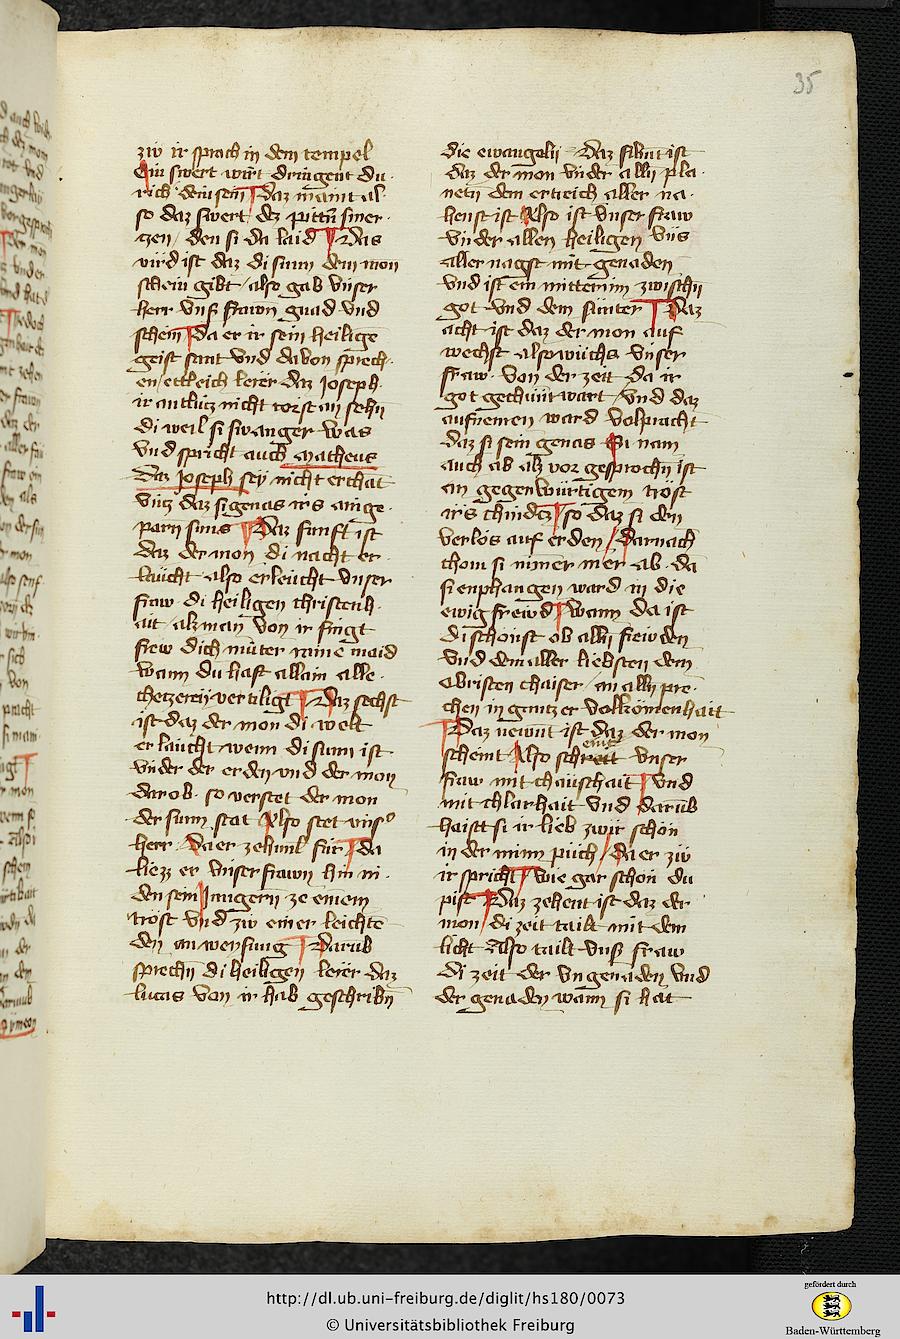 35
zw ir sprach in dem tempel
Ein swert wirt dringent du
rich dein sein daz maint al
so daz swert dez pittrn smer
tzen den si da laid Das
vird ist daz di sunn dem mon
schein gibt also gab vnser
herr vns frawn gnad vnd
schein da er ir sein heilige
geist sant vnd dauon sprech
en ettleich lerer daz Joseph
ir antlutz nicht torst an sehn
di weil si swanger was
vnd spricht auch Matheus
daz Joseph sey nicht erchat
vntz daz si genas irs ainge
parn suns Daz funft ist
daz der mon di nacht er
laucht also erleucht vnser
fraw di heiligen christenh
ait alz man von ir singt
frew dich muter raine maid
wann du hast allain alle
chetzerey vertiligt Daz sechst
ist daz der mon di welt
erlaucht wenn di sunn ist
vnder der erden vnd der mon
darob so verstet der mon
der sunn stat Also stet vns
herr da er ze himl fur da
liezz er vnser frawn hin ni
den sein jungern ze einem
trost vnd zw einer leichte
den an weysung Darub
sprechn di heiligen lerer daz
lucas von ir hab geschribn
die ewangelii Daz sibnt ist
daz der mon vnder alln pla
netn dem ertreich aller na
henst ist Also ist vnser fraw
vnder allen heiligen vns
aller nagst mit genaden
vnd ist ein mitterinn zwischn
got vnd dem sunter Daz
acht ist daz der mon auf
wechst also wuchs vnser
fraw von der zeit da ir
got gechunt wart vnd daz
aufnemen ward volpracht
daz si sein genas Si nam
auch ab alz vor gesprochn ist
an gegenburtigem trost
irs chindez so daz si den
verlos auf erden Darnach
chom si nimer mer ab da
si enphangen ward in die
ewig frewd Wann da ist
di schonst ob alln frewden
vnd dem aller liebsten dem
obristen chaiser an alln pre
chen in gantzer volkomenhait
Daz newnt ist daz der mon
scheint Also scheint vnser
fraw mit chauschait vnd
mit chlarhait vnd darub
haisst si ir lieb zwir schon
in der minn puch da er zw
ir spricht wie gar schon du
pist Daz zehent ist daz der
mon di zeit tailt mit dem
licht Also tailt vns fraw
di zeit der vngenaden vnd
der genaden wann si hat
http://dl.ub.uni-freiburg.de/diglit/hs180/0073
© Universitätsbibliothek Freiburg
gefördert durch
Baden-Württemberg